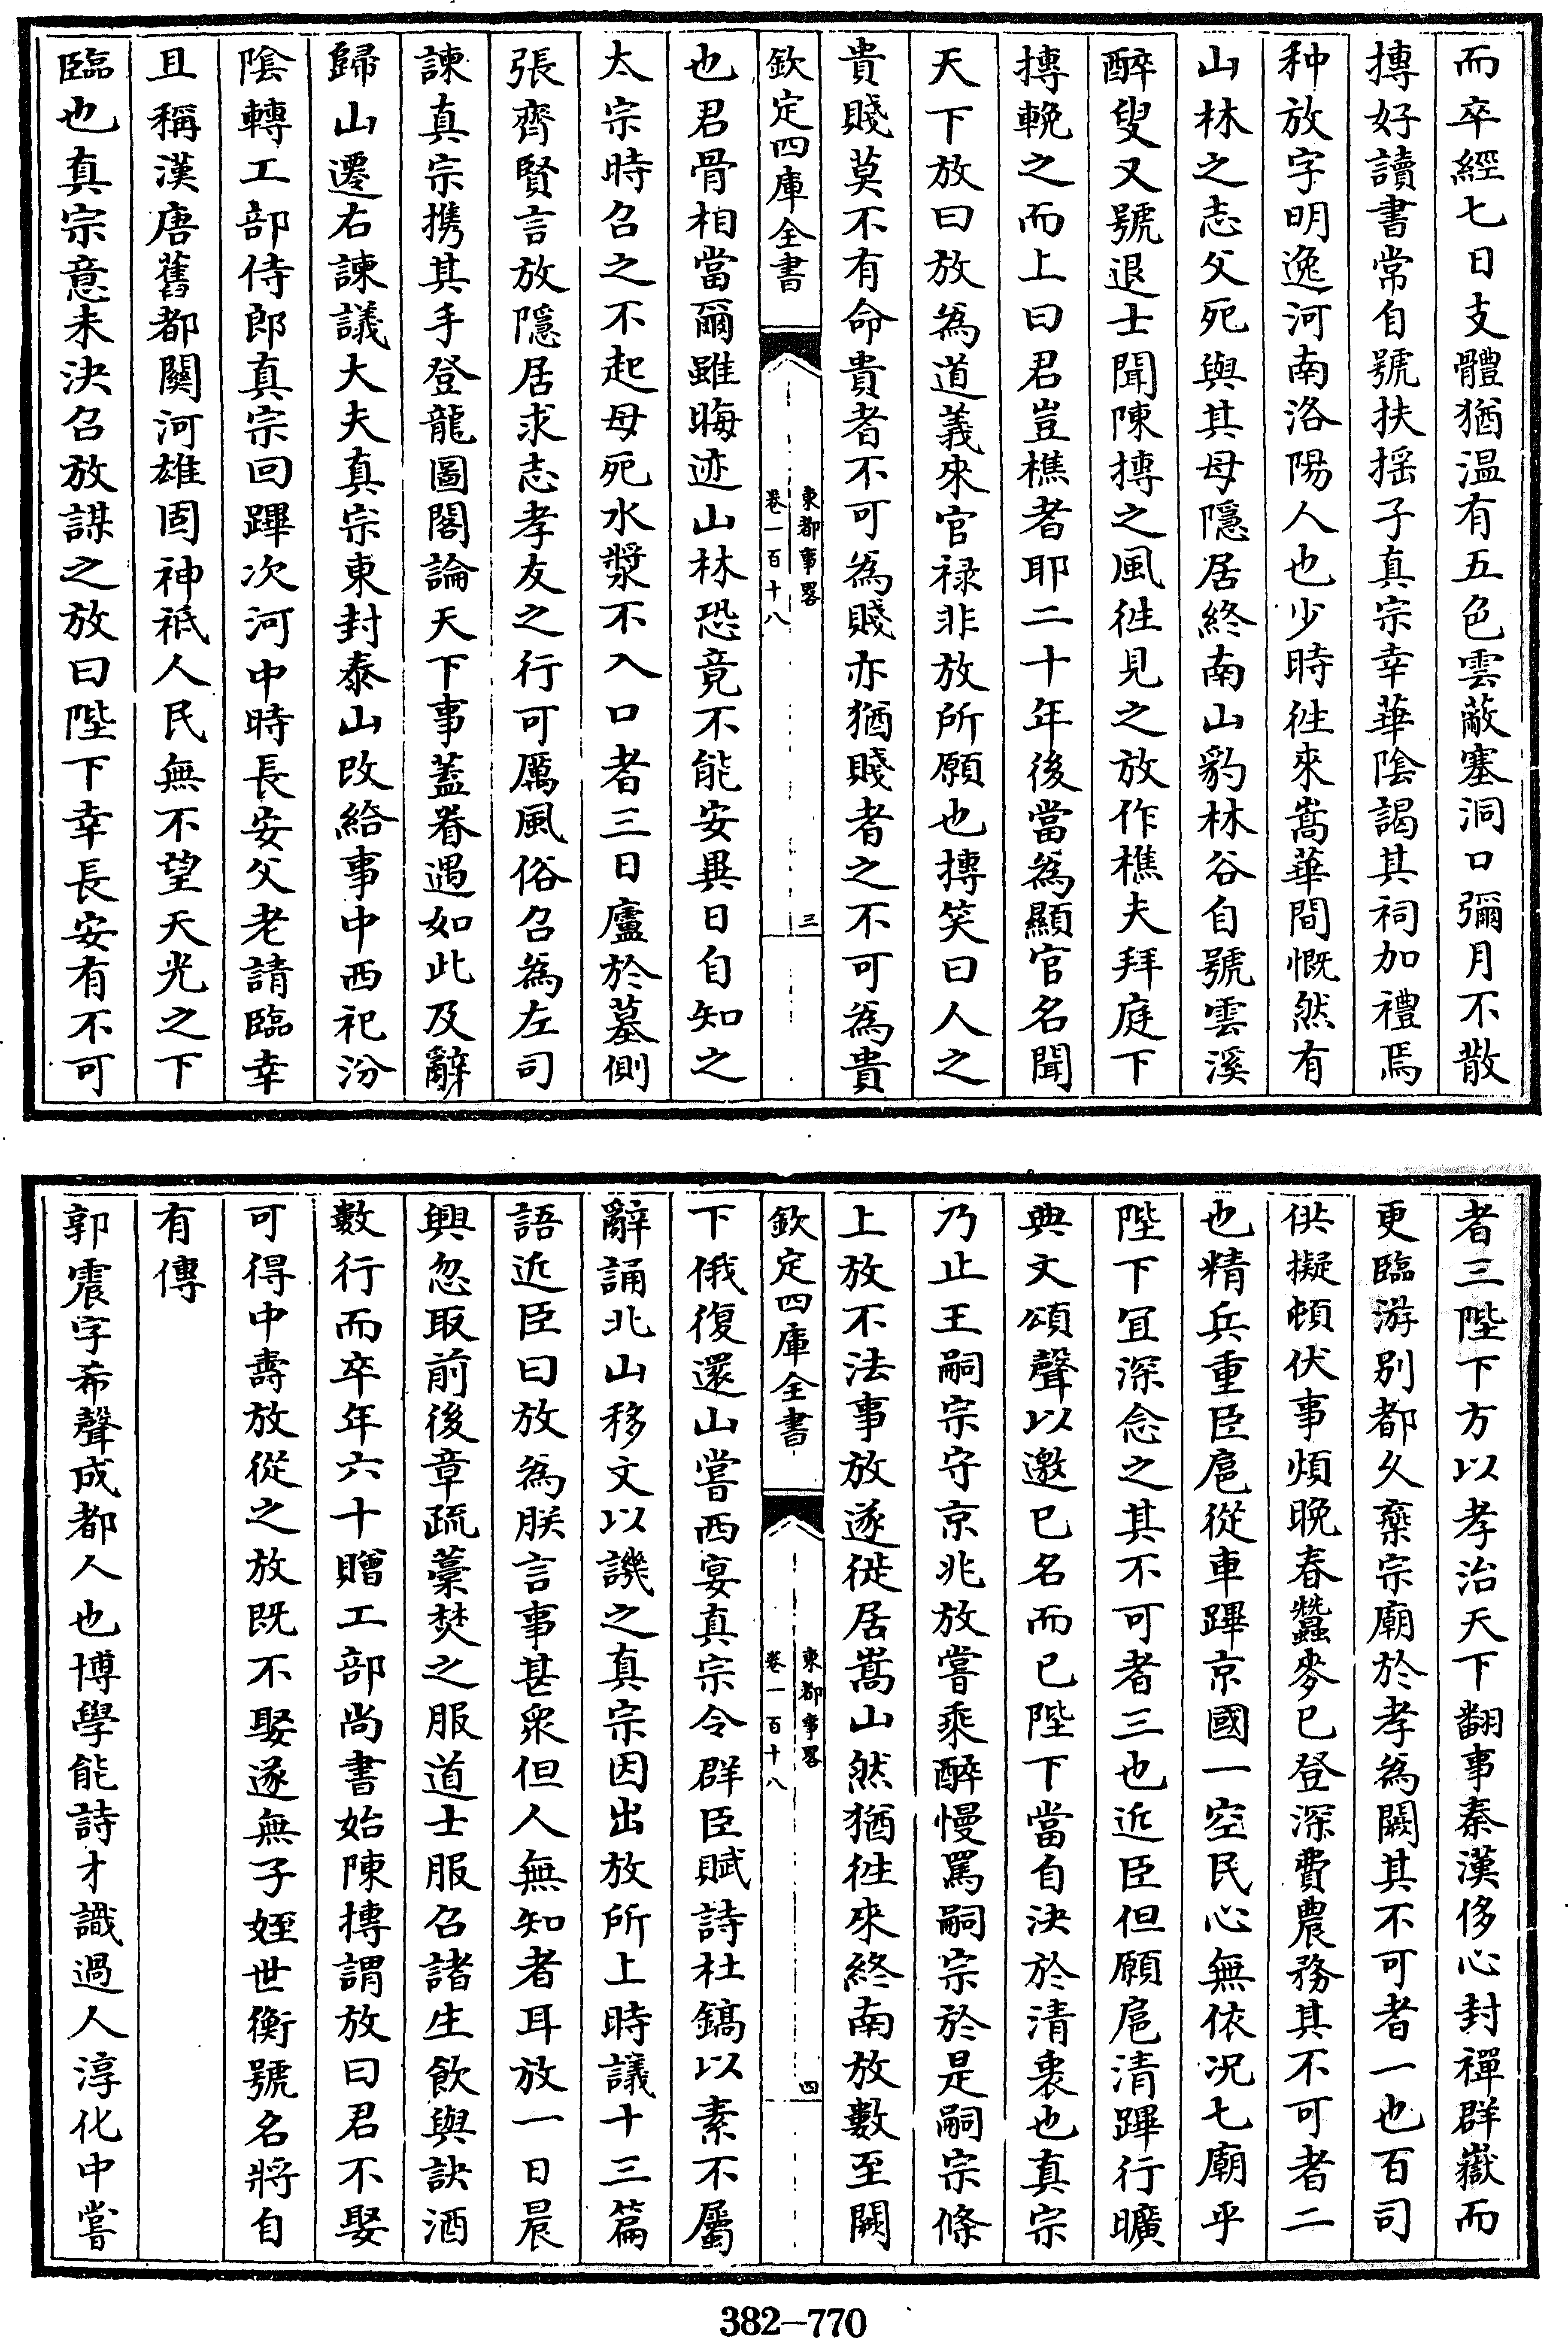 而卒經七日支體猶温有五色雲蔽塞洞口彌月不散
摶好讀書常自號扶揺子真宗幸華隂謁其祠加禮焉
种放字明逸河南洛陽人也少時徃來嵩華間慨然有
山林之志父死與其母隱居終南山豹林谷自號雲溪
醉叟又號退士聞陳摶之風徃見之放作樵夫拜庭下
摶輓之而上曰君豈樵者耶二十年後當為顯官名聞
天下放曰放為道義來官禄非放所願也摶笑曰人之
貴賤莫不有命貴者不可為賤亦猶賤者之不可為貴
欽定四庫全書
東都事畧
卷一百十八
三
也君骨相當爾雖晦迹山林恐竟不能安異日自知之
太宗時召之不起母死水漿不入口者三日廬於墓側
張齊賢言放隱居求志孝友之行可厲風俗召為左司
諫真宗攜其手登龍圖閣論天下事蓋眷遇如此及辭
歸山遷右諫議大夫真宗東封泰山改給事中西祀汾
隂轉工部侍郎真宗回蹕次河中時長安父老請臨幸
且稱漢唐舊都關河雄固神祗人民無不望天光之下
臨也真宗意未決召放謀之放曰陛下幸長安有不可
者三陛下方以孝治天下翻事秦漢侈心封禪群嶽而
更臨游别都久棄宗廟於孝為闕其不可者一也百司
供擬頓伏事煩晚春蠶麥已登深費農務其不可者二
也精兵重臣扈從車蹕京國一空民心無依况七廟乎
陛下宜深念之其不可者三也近臣但願扈清蹕行曠
典文頌聲以邀已名而已陛下當自決於清衷也真宗
乃止王嗣宗守京兆放嘗乘醉慢罵嗣宗於是嗣宗條
上放不法事放遂徙居嵩山然猶徃來終南放數至闕
欽定四庫全書
東都事畧
卷一百十八
四
下俄復還山嘗西宴真宗令群臣賦詩杜鎬以素不屬
辭誦北山移文以譏之真宗因出放所上時議十三篇
語近臣曰放為朕言事甚衆但人無知者耳放一日晨
興忽取前後章疏藁焚之服道士服召諸生飲與訣酒
數行而卒年六十贈工部尚書始陳摶謂放曰君不娶
可得中壽放從之放既不娶遂無子姪世衡號名將自
有傳
郭震字希聲成都人也博學能詩才識過人淳化中嘗
382—770